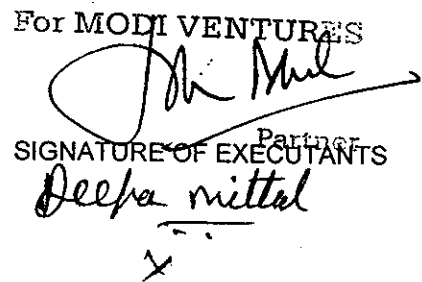 For MODI VENTURES
Partner
SIGNATURE OF EXECUTANTS
Deepa mittal
X